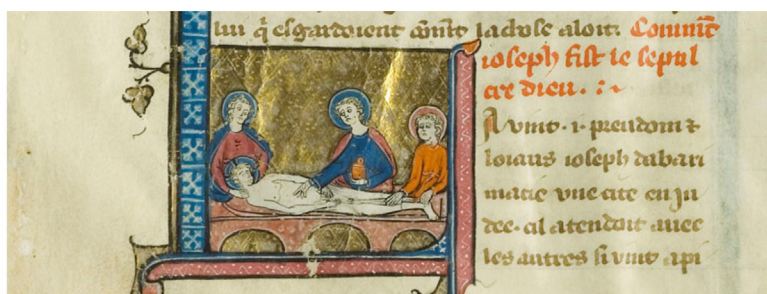 lui q̄ esgardoient cōm̄t la chose aloit. Commēt
ioseph fist le sepul
cre dieu.
A uint .i. preudom ⁊
loiaus ioseph dabari
matie une cite en iu
dee. cil atendoit auec
les autres si uint a pi